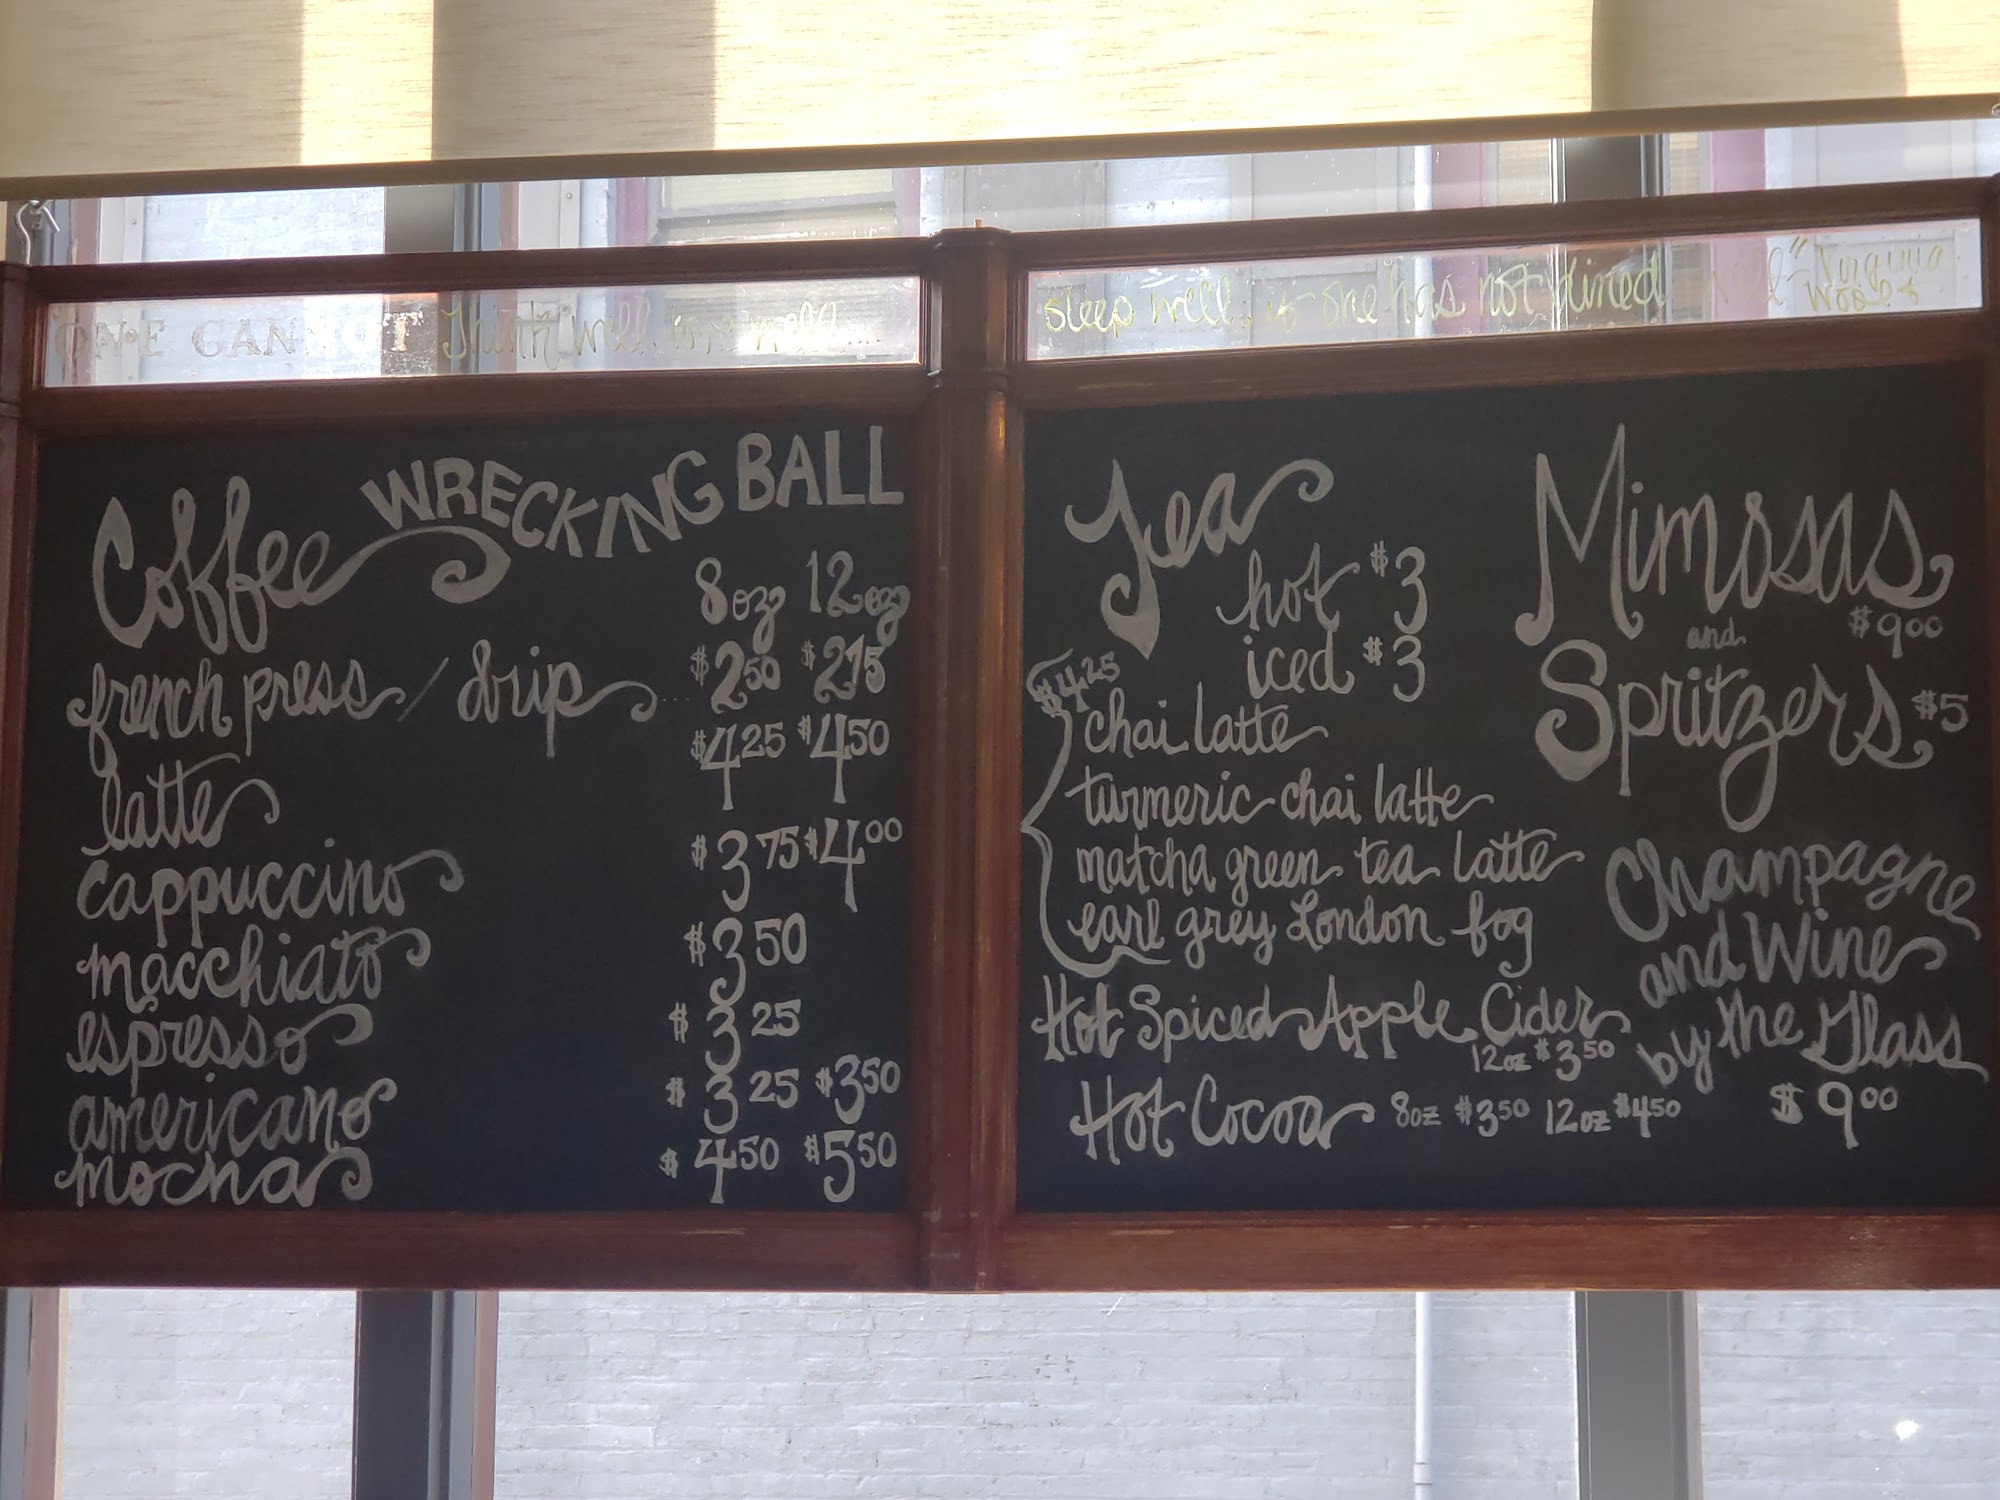 ONE CANNOT Think well, love well
sleep well, if one has not dined well" - Virginia
Woolf
Coffee WRECKING BALL
8oz 12oz
french press / drip $2.50 $2.75
latte $4.25 $4.50
cappuccino $3.75 $4.00
macchiato $3.50
espresso $3.25
americano $3.25 $3.50
mocha $4.50 $5.50
Tea
hot $3
iced $3
$4.25
chai latte
turmeric chai latte
matcha green tea latte
earl grey London fog
Hot Spiced Apple Cider
12oz $3.50
Hot Cocoa 8oz $3.50 12oz $4.50
Mimosas
$9.00
and
Spritzers $5
Champagne
and Wine
by the Glass
$9.00